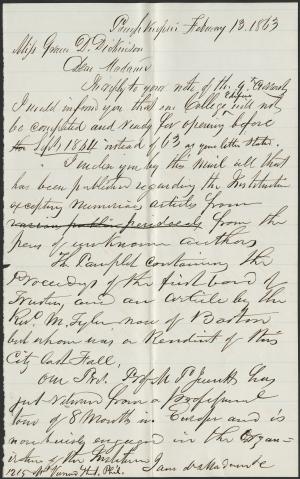 Poughkeepsie February 13. 1863
Miss Grace D. Dickinson
Dear Madam
In reply to your note of the 9th
I would inform you that our College Edifice will not
be completed and ready for opening before
Sept 1864 instead of 63 as your letter states.
I enclose you by this mail all that
has been published regarding the Institution
excepting numerous articles from
various public periodicals from the
pens of unknown authors
The Pamphlet containing the
Proceedings of the first board of
Trustees and an article by the
Revd M. Tyler now of Boston
but whom was a Resident of this
City last Fall.
Our Prof. M. P. Jewett has
just returned from a professional
tour of 8 Months in Europe and is
now busily engaged in the Organ-
ization of the Institution I am
1215 Mt Vernon Phil.